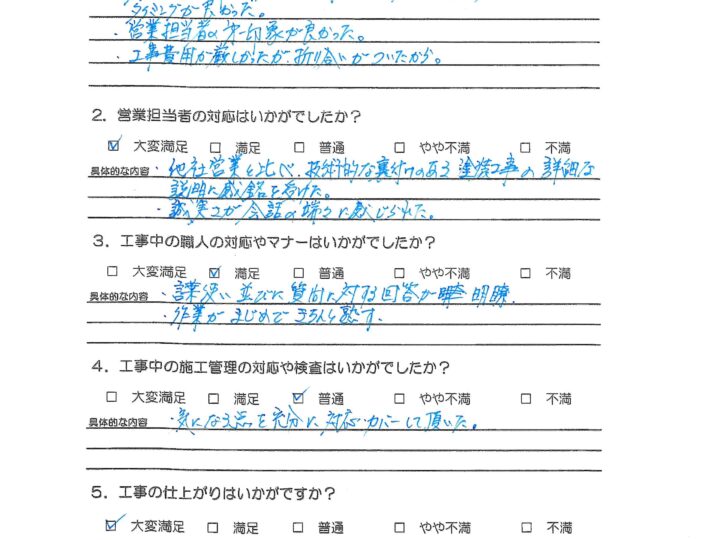 タイミングが良かった。
・営業担当者の第一印象が良かった。
・工事費用が厳しかったが、折り合いがついたから。
2．営業担当者の対応はいかがでしたか？
☑ 大変満足 □ 満足 □ 普通 □ やや不満 □ 不満
具体的な内容 ・他社営業と比べ、技術的な裏付けのある塗装工事の詳細な
説明に感銘を受けた。
・誠実さが会話の端々に感じられた。
3．工事中の職人の対応やマナーはいかがでしたか？
□ 大変満足 ☑ 満足 □ 普通 □ やや不満 □ 不満
具体的な内容 ・言葉使い並びに質問に対する回答が明瞭、
・作業がまじめできちんと
4．工事中の施工管理の対応や検査はいかがでしたか？
□ 大変満足 □ 満足 ☑ 普通 □ やや不満 □ 不満
具体的な内容 ・気になる点を充分に対応・カバーして頂いた。
5．工事の仕上がりはいかがですか？
☑ 大変満足 □ 満足 □ 普通 □ やや不満 □ 不満